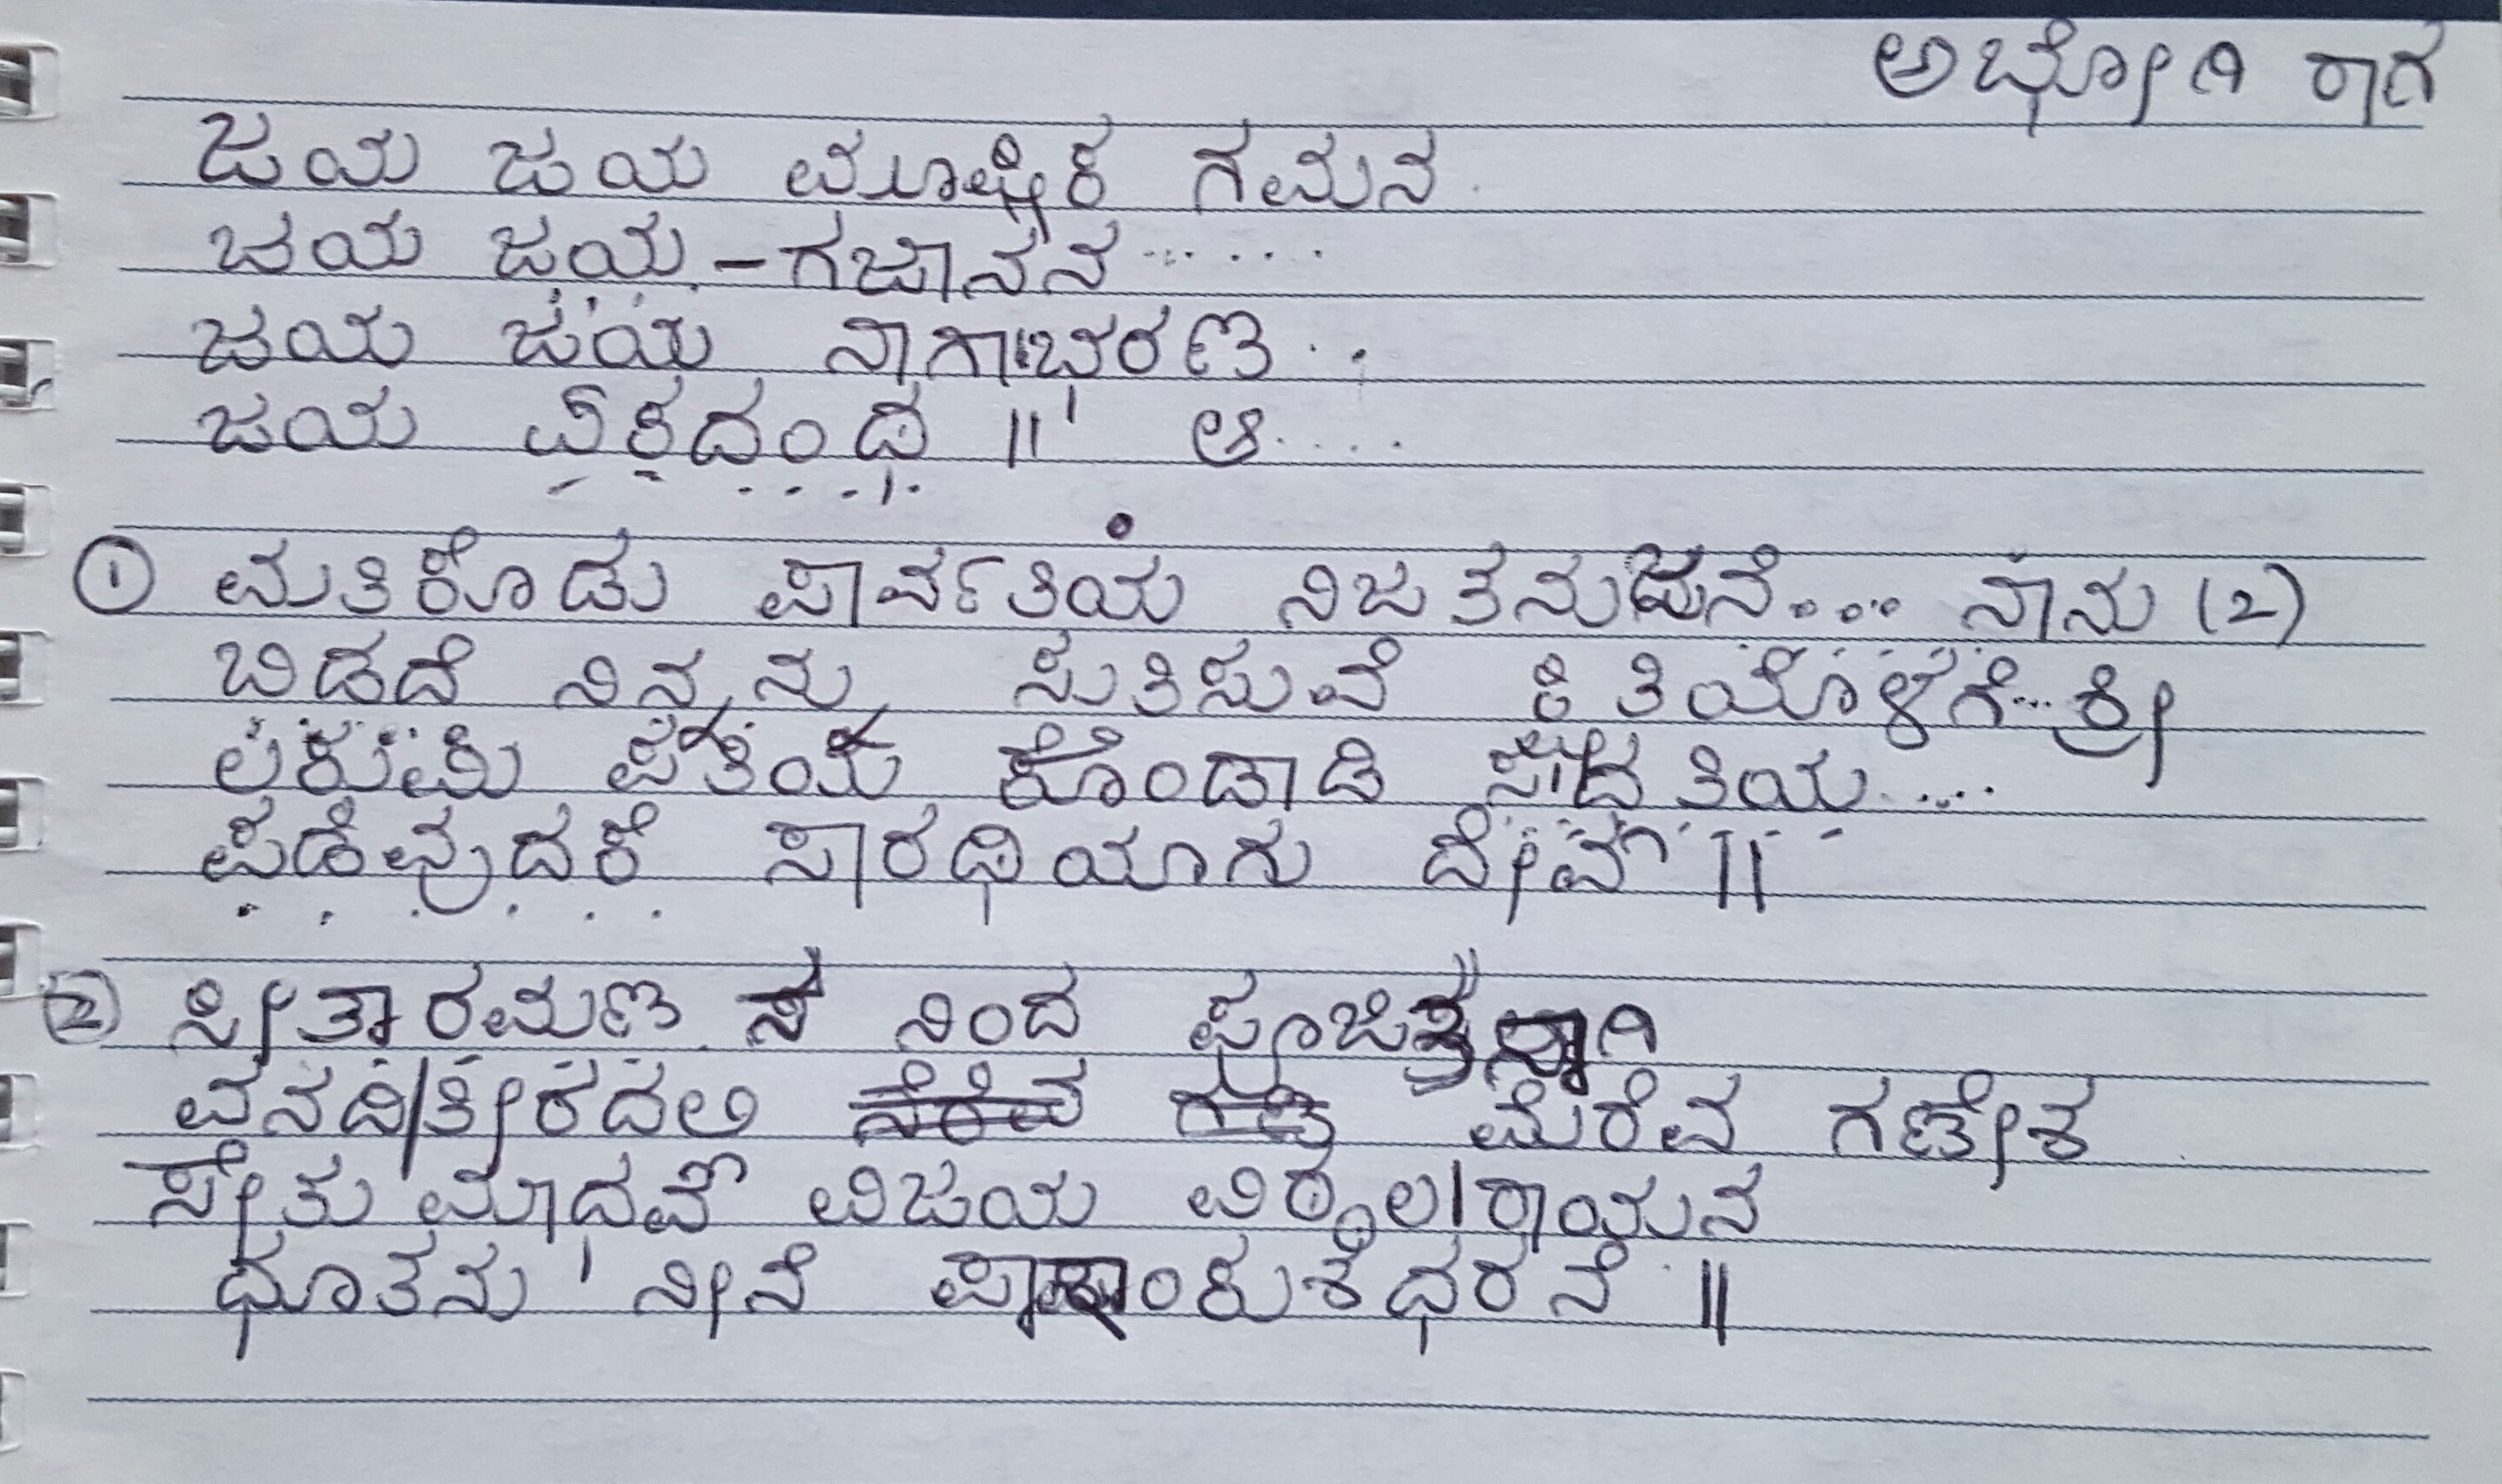 ಅಭೋಗಿ ರಾಗ
ಜಯ ಜಯ ಮೂಷಿಕ ಗಮನ
ಜಯ ಜಯ - ಗಜಾನನ ......
ಜಯ ಜಯ ನಾಗಾಭರಣ ..
ಜಯ ಏಕದಂಥ || ಆ....
① ಮತಿಕೊಡು ಪಾರ್ವತಿಯ ನಿಜತನುಜನೆ.... ನಾನು (2)
ಬಿಡದೆ ನಿನ್ನನು ಸುತಿಸುವೆ ಕ್ಷಿತಿಯೊಳಗೆ... ಶ್ರೀ
ಲಕುಮಿ ಪತಿಯ ಕೊಂಡಾಡಿ ಸದ್ಗತಿಯ....
ಪಡೆವುದಕೆ ಸಾರಥಿಯಾಗು ದೇವಾ ||
② ಸೀತಾರಮಣ ನಿಂದ ಪೂಜಿತನಾಗಿ
ವನದಿ/ತೀರದಲಿ ಮೆರೆವ ಗಣೇಶ
ಸೇತು ಮಾಧವ ವಿಜಯ ವಿಠ್ಠಲ/ರಾಯನ
ಧೂತನು ' ನೀನೆ ಪಾಶಾಂಕುಶಧರನೆ ||